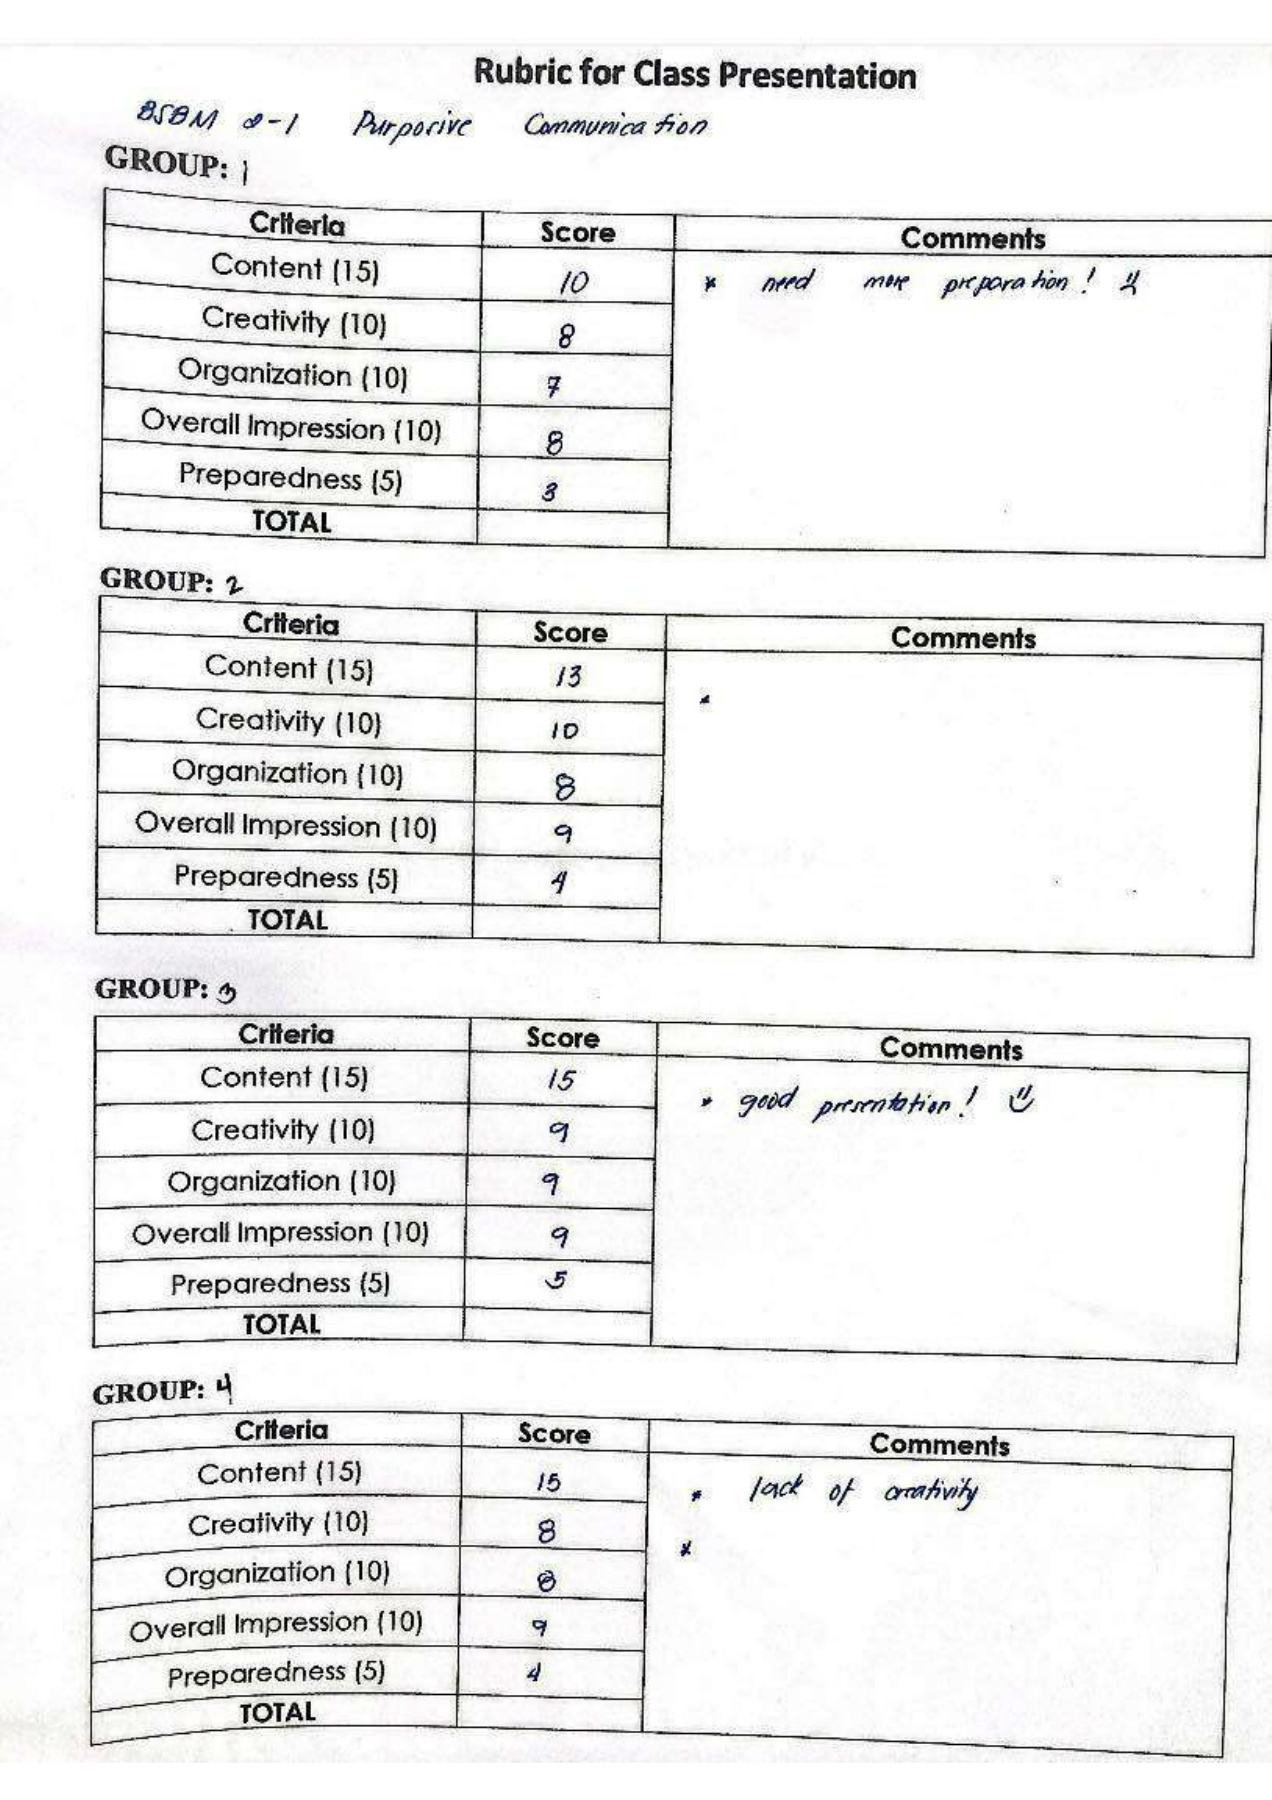 Rubric for Class Presentation
BSBM 2-1 Purposive Communication
GROUP: 1
Criteria Score Comments
Content (15) 10 * need more preparation!
Creativity (10) 8
Organization (10) 7
Overall Impression (10) 8
Preparedness (5) 3
TOTAL
GROUP: 2
Criteria Score Comments
Content (15) 13 *
Creativity (10) 10
Organization (10) 8
Overall Impression (10) 9
Preparedness (5) 4
TOTAL
GROUP: 3
Criteria Score Comments
Content (15) 15 * good presentation!
Creativity (10) 9
Organization (10) 9
Overall Impression (10) 9
Preparedness (5) 5
TOTAL
GROUP: 4
Criteria Score Comments
Content (15) 15 * lack of creativity
Creativity (10) 8 *
Organization (10) 8
Overall Impression (10) 9
Preparedness (5) 4
TOTAL